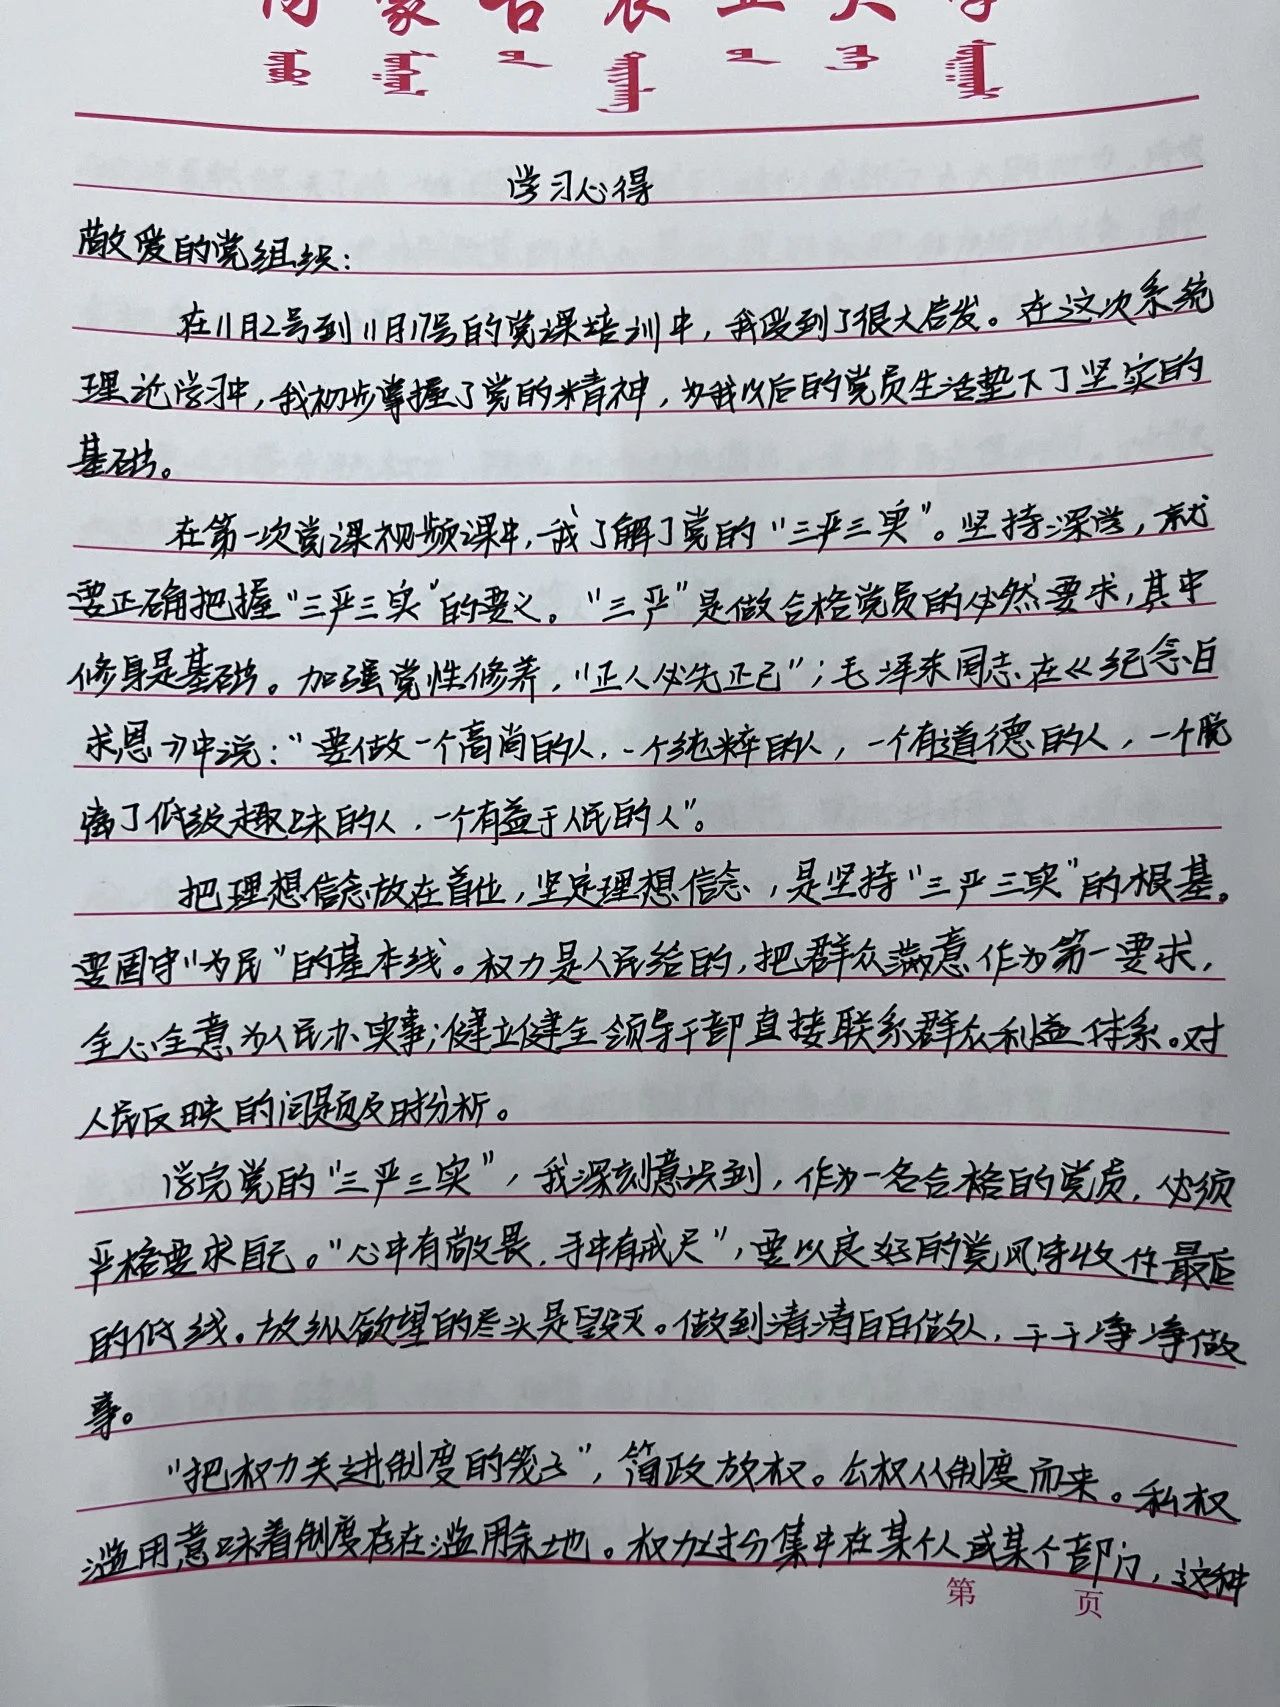 内蒙古农业大学
学习心得
敬爱的党组织：
在11月2号到11月17号的党课培训中，我受到了很大启发。在这次系统
理论学习中，我初步掌握了党的精神，为我以后的党员生活垫下了坚实的
基础。
在第一次党课视频课中，我了解了党的“三严三实”。坚持深学，就
要正确把握“三严三实”的要义。“三严”是做合格党员的必然要求，其中
修身是基础。加强党性修养，“正人必先正己”；毛泽东同志在《纪念白
求恩》中说：“要做一个高尚的人，一个纯粹的人，一个有道德的人，一个脱
离了低级趣味的人，一个有益于人民的人”。
把理想信念放在首位，坚定理想信念，是坚持“三严三实”的根基。
要固守“为民”的基本线。权力是人民给的，把群众满意作为第一要求，
全心全意为人民办实事；健立健全领导干部直接联系群众利益体系。对
人民反映的问题及时分析。
学完党的“三严三实”，我深刻意识到，作为一名合格的党员，必须
严格要求自己。“心中有敬畏，手中有戒尺”，要以良好的党风守收住最后
的低线。放纵欲望的尽头是毁灭。做到清清白白做人，干干净净做
事。
“把权力关进制度的笼子”，简政放权。公权从制度而来。私权
滥用意味着制度存在滥用余地。权力过分集中在某个人或某个部门，这种
第 页